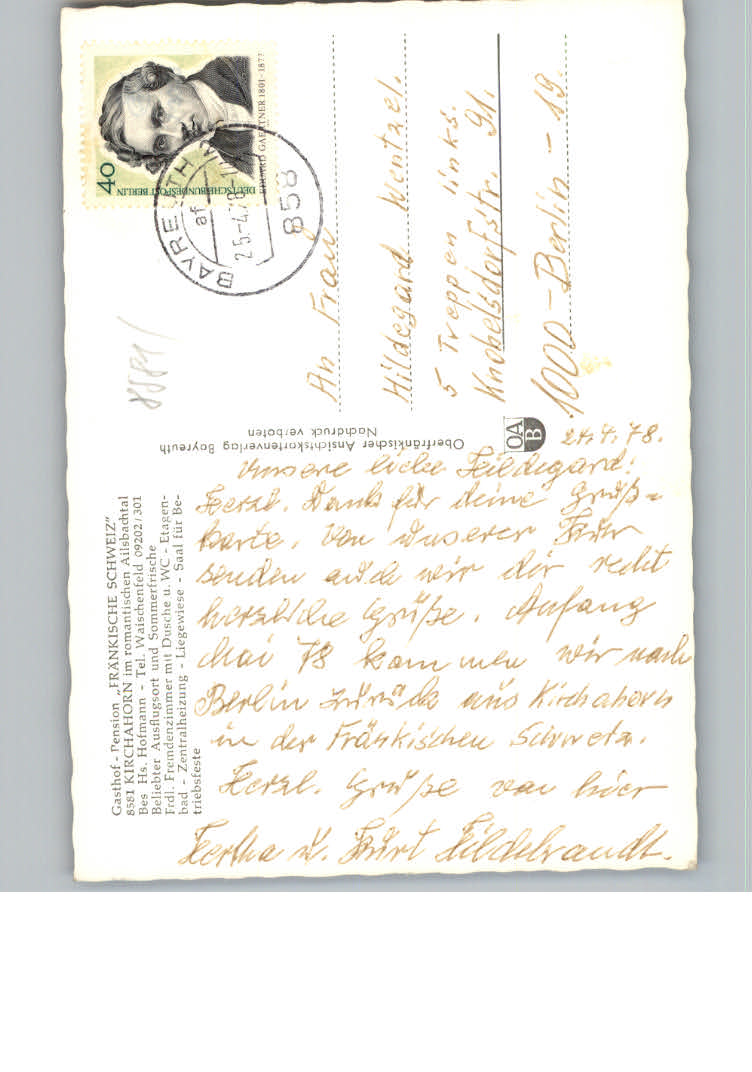 Gasthof - Pension „FRÄNKISCHE SCHWEIZ"
8581 KIRCHAHORN im romantischen Ailsbachtal
Bes Hs. Hofmann - Tel. Waischenfeld 09202/301
Beliebter Ausflugsort und Sommerfrische
Frdl. Fremdenzimmer mit Dusche u. WC - Etagen-
bad - Zentralheizung - Liegewiese - Saal für Be-
triebsfeste
Oberfränkischer Ansichtskartenverlag Bayreuth
Nachdruck verboten
OA
B
24.4.78.
Unsere liebe Hildegard!
Herzl. Dank für deine Gruß=
karte. Von unserer Kur
senden auch wir dir recht
herzliche Grüße. Anfang
Mai 78 kommen wir nach
Berlin zurück aus Kirchahorn
in der Fränkischen Schweiz.
Herzl. Grüße von hier
Hertha u. Kurt Hildebrandt.
40
DEUTSCHE BUNDESPOST BERLIN
EDUARD GAERTNER 1801-1877
BAYREUTH
25.-4.78
858
An Frau
Hildegard Wentzel.
5 Treppen links.
Knobelsdorfstr. 91.
1000-Berlin-19.